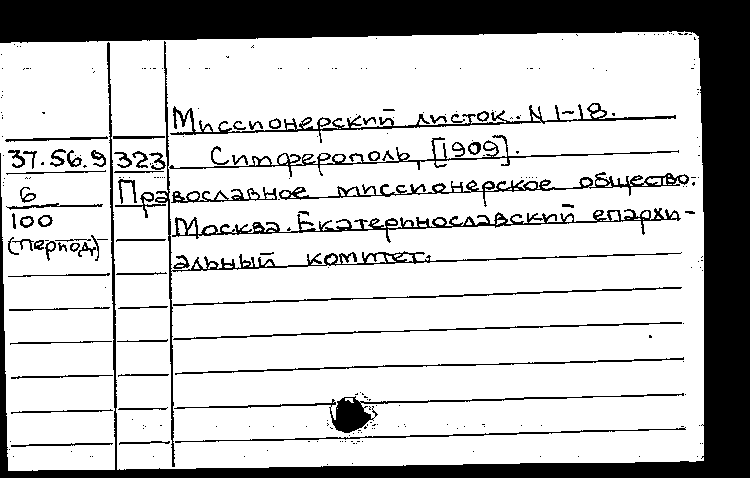 Миссионерский листок. N 1-18.
37.56.9 323. Симферополь, [1909].
6 Православное миссионерское общество.
100 Москва. Екатеринославский епархи-
(период.) альный комитет.